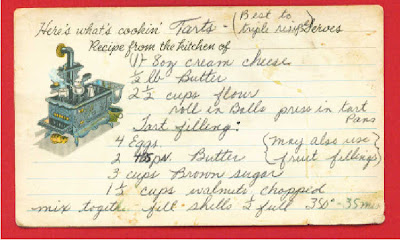 Here's what's cookin' Tarts - (Best to
triple recipe) Serves
Recipe from the kitchen of
1 8oz cream cheese
½ lb Butter
2 ½ cups flour
roll in Balls press in tart
Pans
Tart filling:
4 Eggs (may also use
2 Butter fruit fillings)
3 cups Brown sugar
1 ½ cups walnuts chopped
mix together fill shells ½ full 350° - 35 min